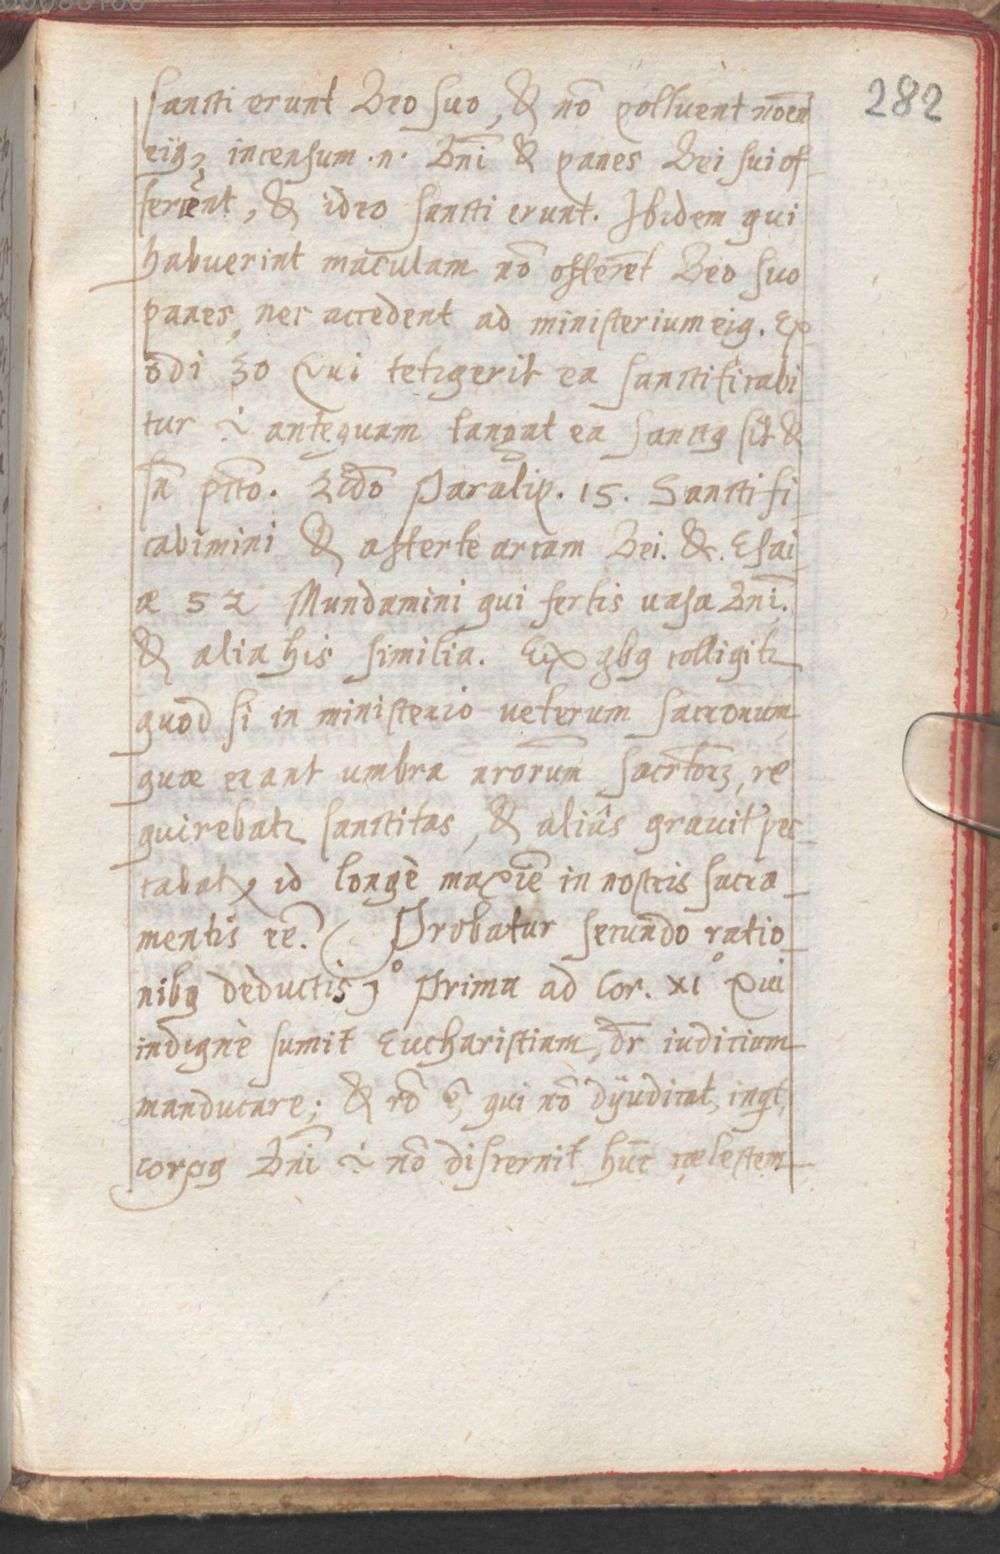 282
sancti erunt Deo suo, & nō polluent noēn
eiꝰ, incensum .n. Dn̄i & panes Dei sui of
ferūnt, & ideo sancti erunt. Ibidem qui
habuerint maculam nō offerēt Deo suo
panes, nec accedent ad ministerium eiꝰ. Ex
odi 30 Qui tetigerit ea sanctificabi
tur .i. antequam tangat ea sanctꝰ sit &
sn̄ pctō. 2do Paralip. 15. Sanctifi
cabimini & afferte arcam Dei. &c. Esai
æ 52 Mundamini qui fertis uasa Dn̄i.
& alia his similia. Ex qbꝰ colligitr
quod si in ministerio ueterum sacrorum
quæ erant umbra nrōrum sacrtōrꝫ, re
quirebatr sanctitas, & aliûs grauitr pec
cabatr, id longè maxiē in nostris sacra
mentis eē. Probatur secundo ratio
nibꝰ deductis 1º prima ad Cor. XIº Qui
indignè sumit Eucharistiam, dr̄ iudicium
manducare; & rō ē, qui nō dijudicat, inqt,
corpꝰ Dn̄i .i. nō discernit hūc cælestem